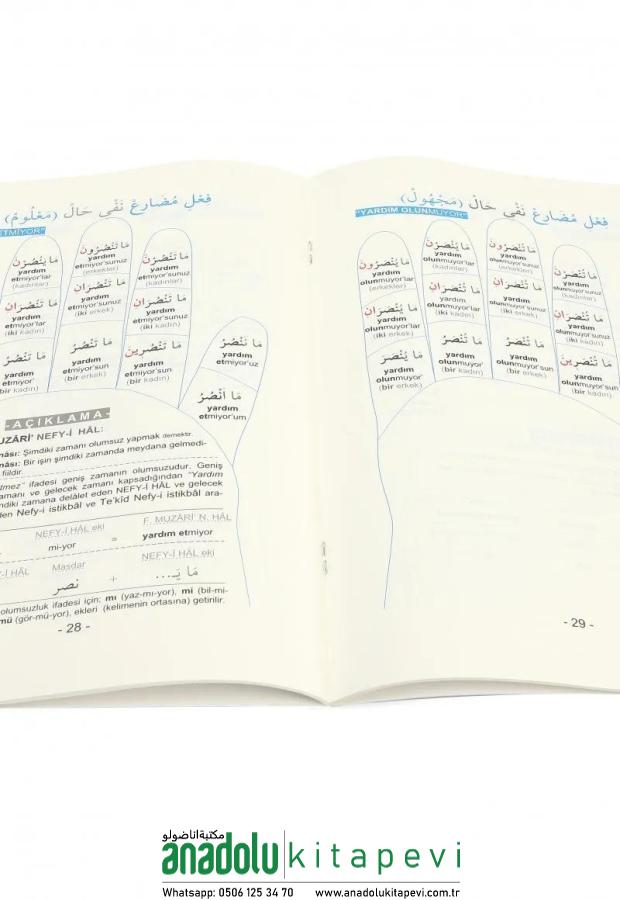 فِعْلِ مُضَارِعْ نَفْى حَالْ (مَعْلُومْ)
ETMİYOR"
مَا يَنْصُرْنَ
yardım
etmiyor'lar
(kadınlar)
مَا تَنْصُرُونَ
yardım
etmiyor'sunuz
(erkekler)
مَا تَنْصُرْنَ
yardım
etmiyor'sunuz
(kadınlar)
مَا تَنْصُرَانِ
yardım
etmiyor'lar
(iki kadın)
مَا تَنْصُرَانِ
yardım
etmiyor'sunuz
(iki erkek)
مَا تَنْصُرَانِ
yardım
etmiyor'sunuz
(iki kadın)
مَا تَنْصُرُ
yardım
etmiyor'
(bir kadın)
مَا تَنْصُرُ
yardım
etmiyor'sun
(bir erkek)
مَا تَنْصُرِينَ
yardım
etmiyor'sun
(bir kadın)
مَا نَنْصُرُ
yardım
etmiyor'uz
مَا اَنْصُرُ
yardım
etmiyor'um
-AÇIKLAMA-
MUZÂRİ' NEFY-İ HÂL:
Şimdiki zamanı olumsuz yapmak demektir.
Bir işin şimdiki zamanda meydana gelmedi-
fiildir.
ifadesi geniş zamanın olumsuzudur. Geniş
ve gelecek zamanı kapsadığından "Yardım
zamana delâlet eden NEFY-İ HÂL ve gelecek
Nefy-i istikbâl ve Te'kîd Nefy-i istikbâl ara-
NEFY-İ HÂL eki F. MUZÂRİ' N. HÂL
mi-yor = yardım etmiyor
HÂL Masdar NEFY-İ HÂL eki
نصر + مَا يَـ...
olumsuzluk ifadesi için; mı (yaz-mı-yor), mi (bil-mi-
mü (gör-mü-yor), ekleri (kelimenin ortasına) getirilir.
- 28 -
فِعْلِ مُضَارِعْ نَفْى حَالْ (مَجْهُولْ)
"YARDIM OLUNMUYOR"
مَا يُنْصَرُونَ
yardım
olunmuyor'lar
(erkekler)
مَا يُنْصَرْنَ
yardım
olunmuyor'lar
(kadınlar)
مَا تُنْصَرُونَ
yardım
olunmuyor'sunuz
(erkekler)
مَا تُنْصَرْنَ
yardım
olunmuyor'sunuz
(kadınlar)
مَا يُنْصَرَانِ
yardım
olunmuyor'lar
(iki erkek)
مَا تُنْصَرَانِ
yardım
olunmuyor'lar
(iki kadın)
مَا تُنْصَرَانِ
yardım
olunmuyor'sunuz
(iki erkek)
مَا تُنْصَرَانِ
yardım
olunmuyor'sunuz
(iki kadın)
مَا يُنْصَرُ
yardım
olunmuyor'
(bir erkek)
مَا تُنْصَرُ
yardım
olunmuyor'
(bir kadın)
مَا تُنْصَرُ
yardım
olunmuyor'sun
(bir erkek)
مَا تُنْصَرِينَ
yardım
olunmuyor'sun
(bir kadın)
- 29 -
مكتبة اناضولو
anadolu kitapevi
Whatsapp: 0506 125 34 70 www.anadolukitapevi.com.tr